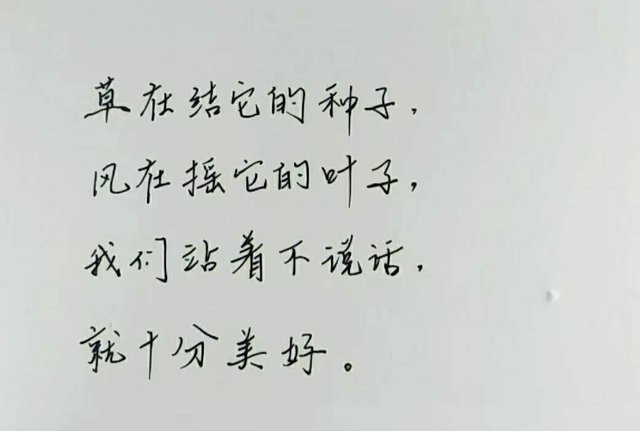 草在结它的种子，
风在摇它的叶子，
我们站着不说话，
就十分美好。